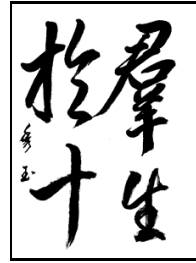 羣生
於十
秀玉